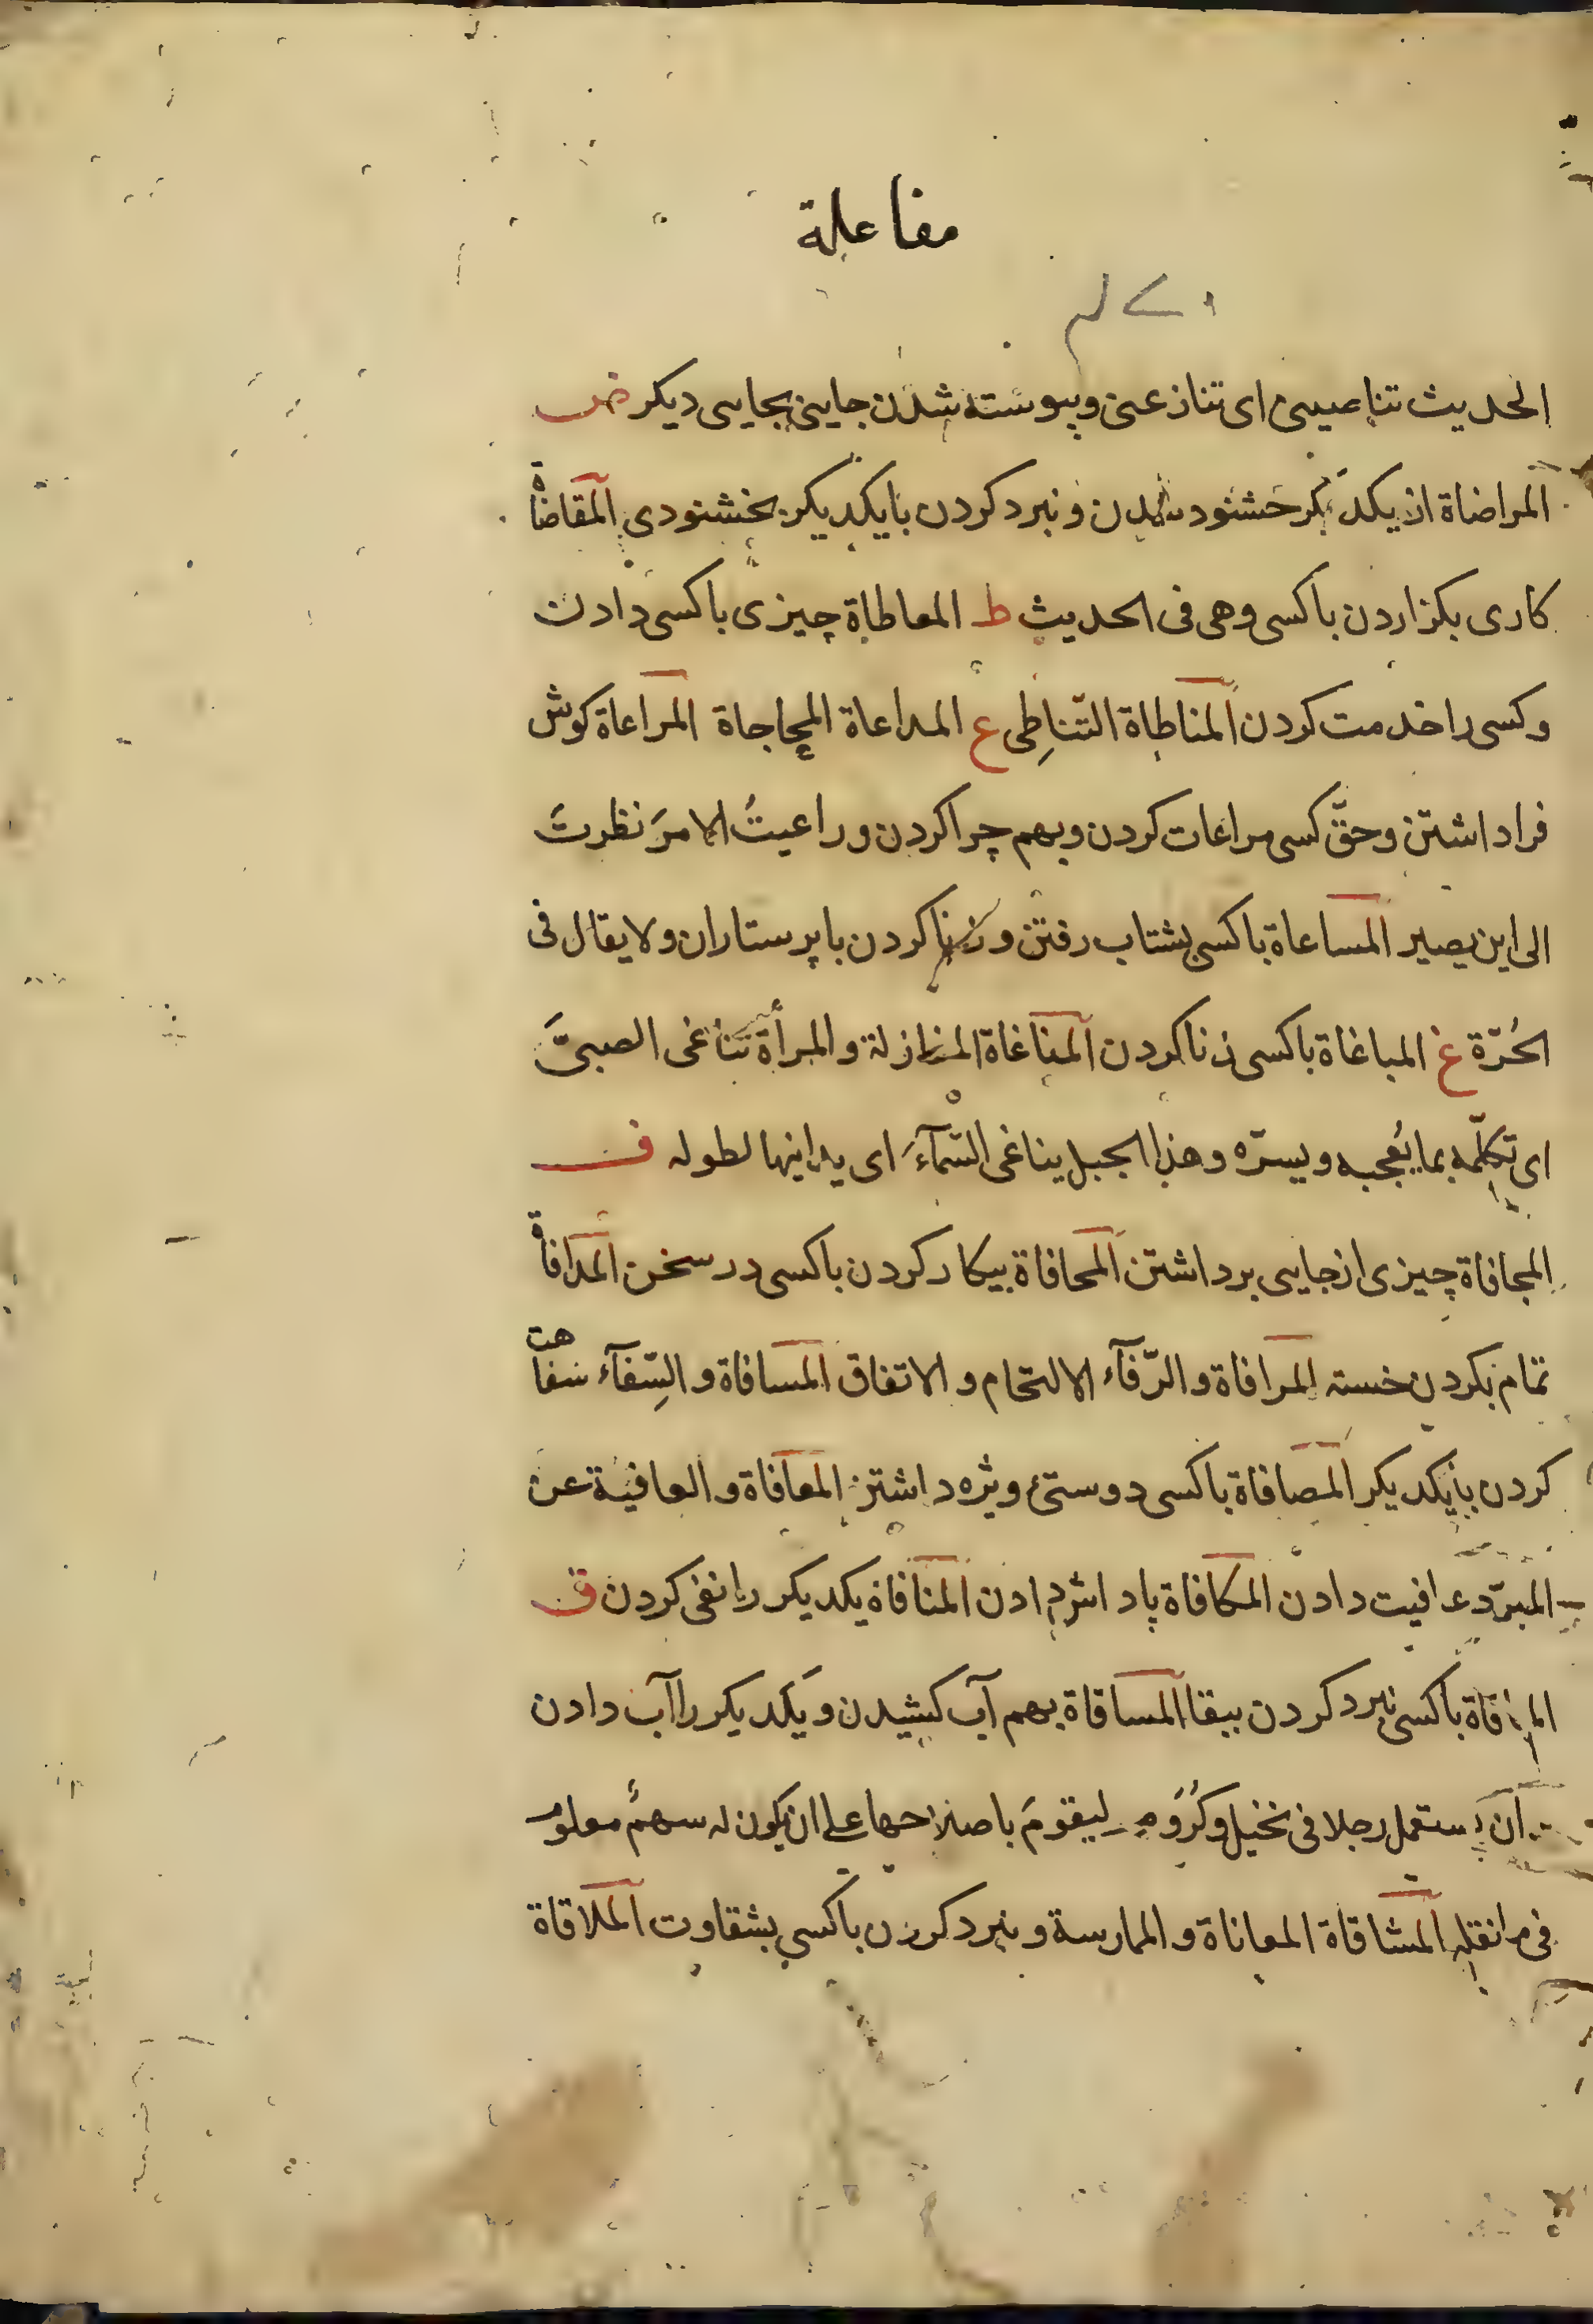 مفاعلة
الحديث تناصيني اى تنازعنى وپيوسته شدن جايى بجايى ديكر ض
المراضاة از يكديكر خشنود شدن و نبرد كردن با يكديكر بخشنودى المقاضاة
كارى بكزاردن باكسى وهى فى الحديث ط المعاطاة چيزى باكسى دادن
وكسى را خدمت كردن المناطاة التّناطِى ع المداعاة المحاجاة المراعاة كوش
فراداشتن وحقّ كسى مراعات كردن وبهم چرا كردن وراعيتُ الامرَ نظرتَ
الى اين يصير المساعاة باكسى بشتاب رفتن وزنا كردن با پرستاران ولا يقال فى
الحُرّة غ المباغاة باكسى زنا كردن المناغاة المغازلة والمرأة تناغى الصبىَّ
اى تكلّمه بما يُعجبه ويسرّه وهذا الجبل يناغى السّمآءَ اى يدانيها لطوله ف
المجافاة چيزى از جايى برداشتن المحافاة بيكار كردن باكسى در سخن المدافاة
تمام بكردن خسته المرافاة والرّفآء الالتحام و الاتفاق المسافاة و السِّفآء سفاهت
كردن بايكديكر المصافاة باكسى دوستئ ويژه داشتن المعافاة و العافية عن
المبرّد عافيت دادن المكافاة پاداش دادن المنافاة يكديكر را نفى كردن ق
باكسى نبرد كردن ببقا المساقاة بهم آب كشيدن و يكديكر را آب دادن
ان يستعمل رجلا فى نخيل وكُرُوم ليقومَ باصلاحها على ان يكون له سهمٌ معلوم
المشاقاة المعاناة و الممارسة و نبرد كردن باكسى بشقاوت الملاقاة